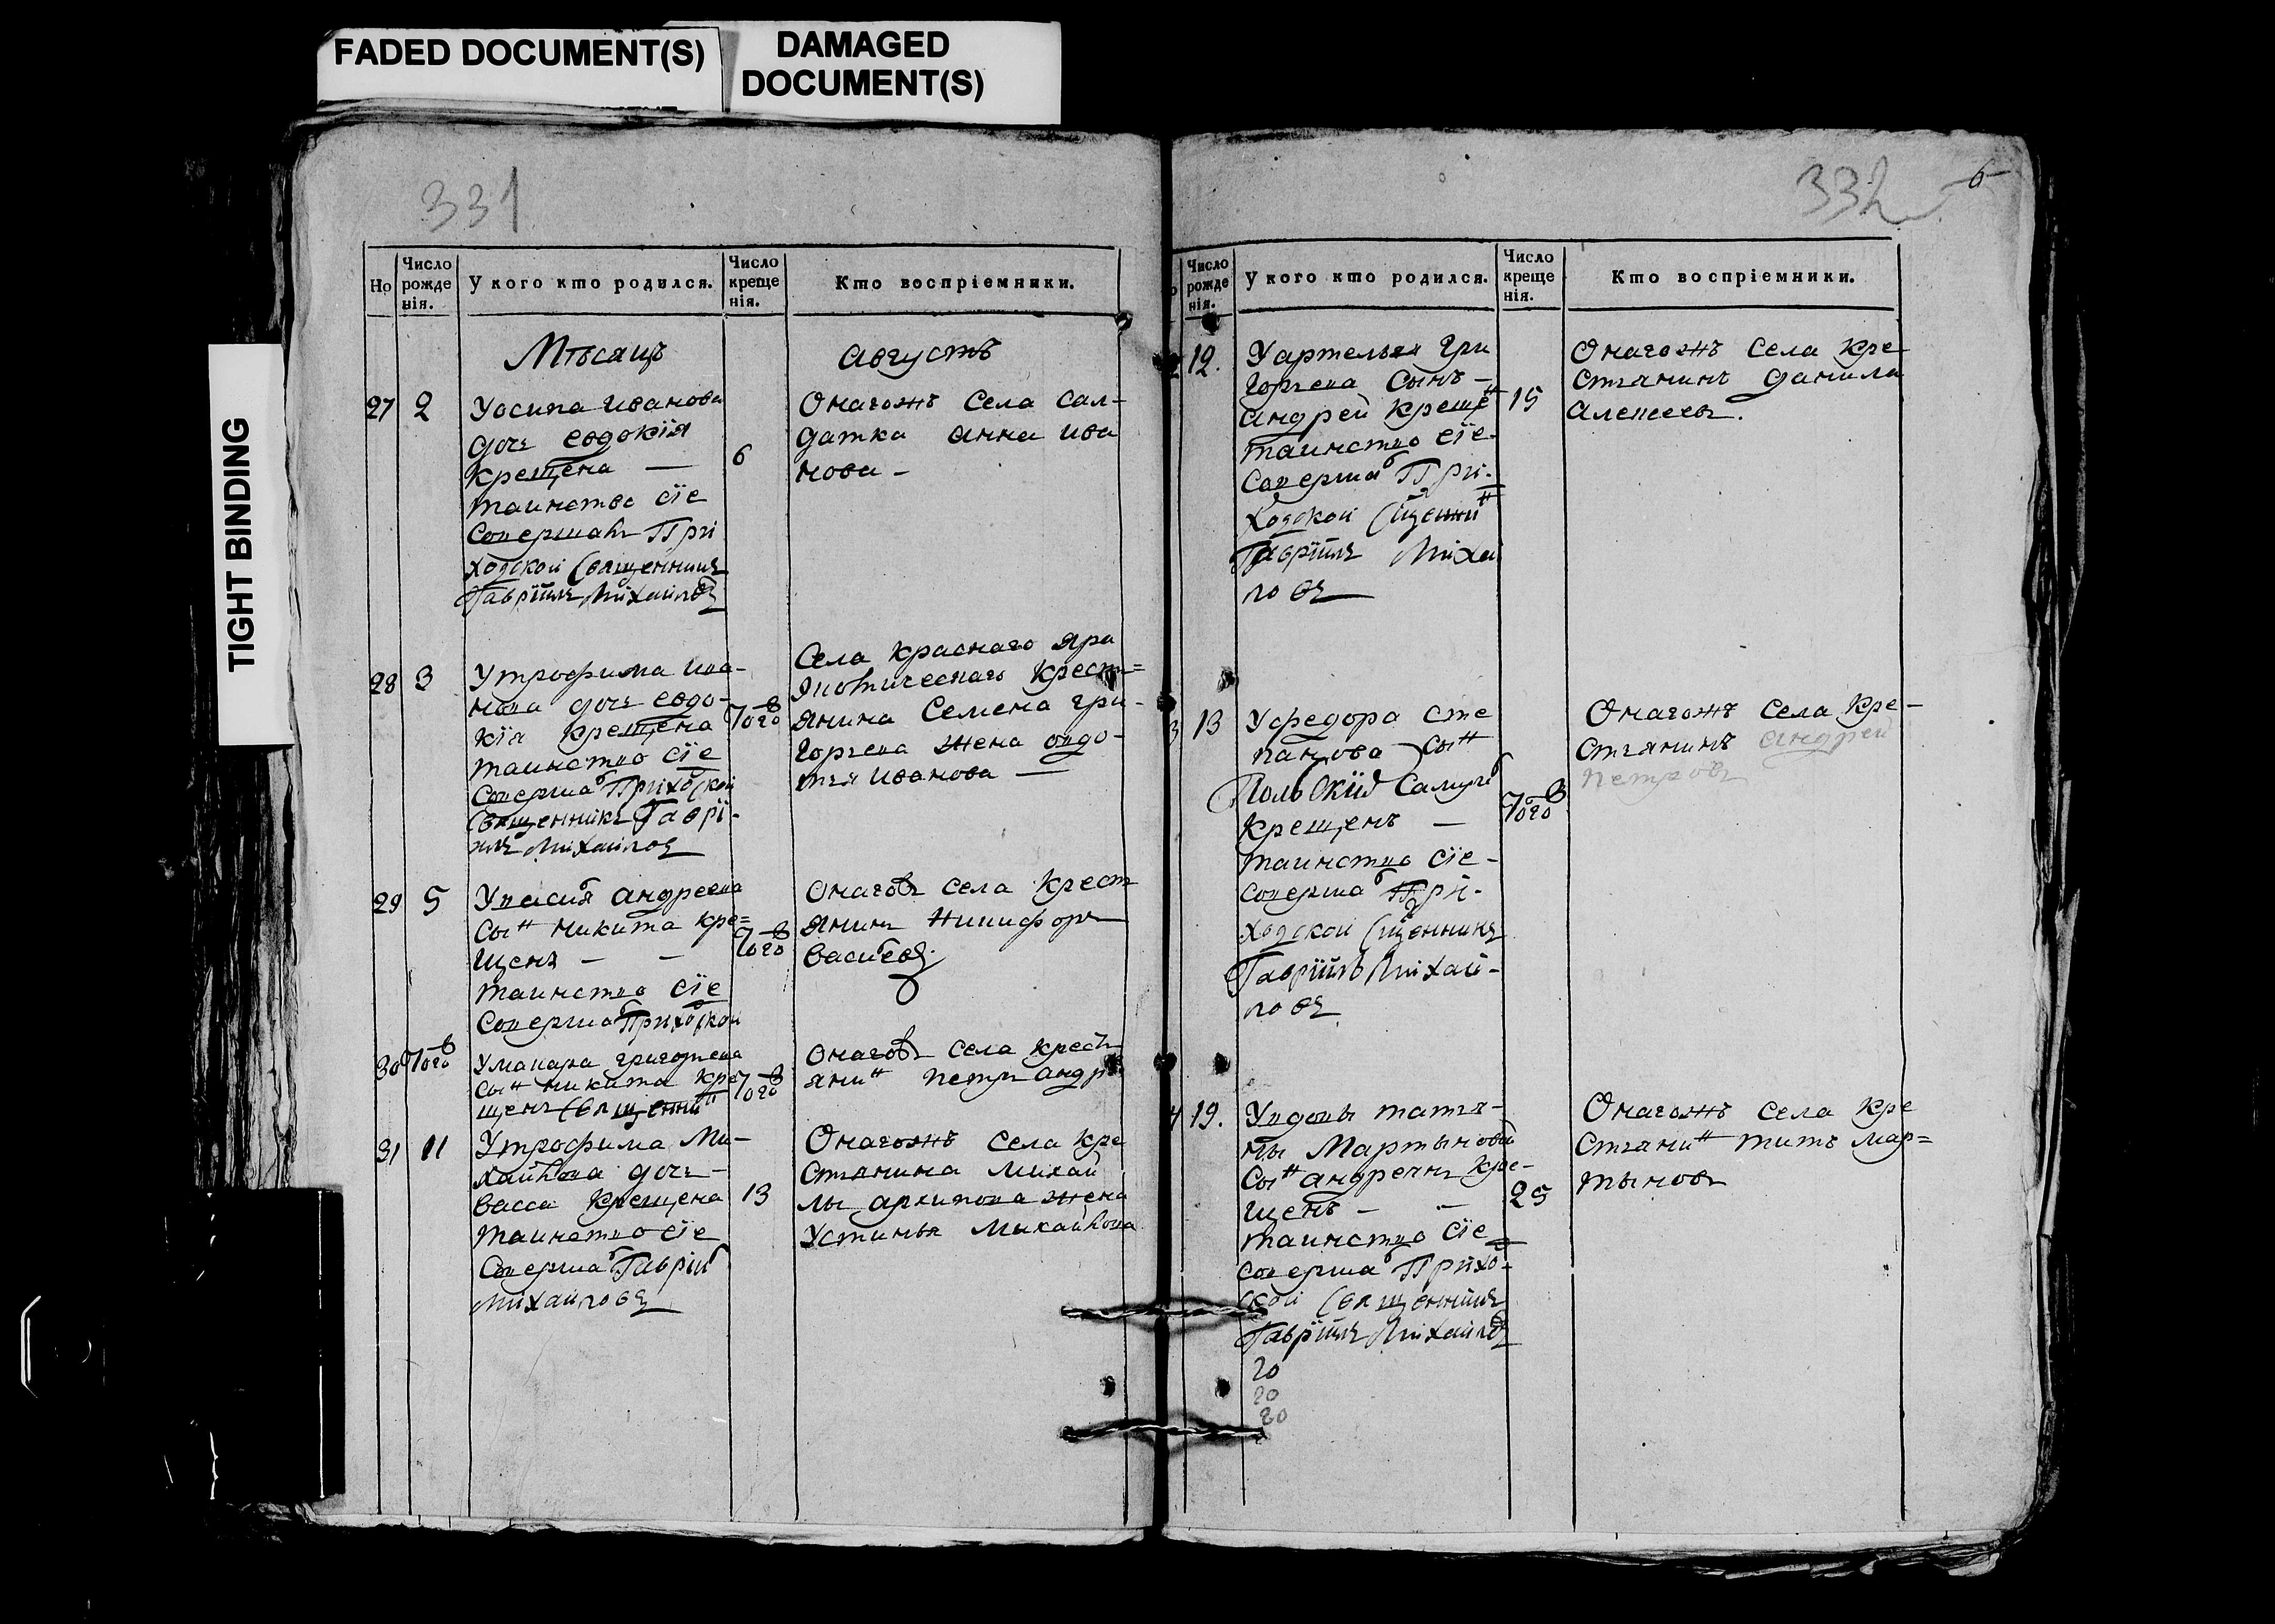 FADED DOCUMENT(S)
DAMAGED
DOCUMENT(S)
TIGHT BINDING
331
Но
Число
рожде
нія.
У кого кто родился.
Число
креще
нія.
Кто воспріемники.
Мѣсяцъ
Августъ
27
2
Уосипа Иванова
дочь Евдокія
крещена —
таинство сїе
Совершалъ При
ходской Священникъ
Гаврїилъ Михайловъ
6
Онагожъ Села Сал-
датка Анна Ива
нова -
28
3
Утрофима Ива-
нова дочь Евдо-
кія крещена
таинство сїе
Соверша Приходской
Священникъ Гаврї-
илъ Михайловъ
Тогов
Села Краснаго Яра
Крест=
янина Семена Гри-
горьева жена
тья Иванова —
29
5
Андреева
Сын Никита кре=
щенъ — —
таинство сїе
Соверша Приходской
Тогов
Онагов Села Крест
янинъ Никифоръ
Васильевъ
30
Тогов
Умакара Григорьева
Сын Никита Кре
щенъ Священни
Тогов
Онагов Села крест
янин Петръ Андр
31
11
Утрофима Ми-
хайлова дочь -
Васса Крещена
таинство сїе
Соверша Гаврїил
Михайловъ
13
Онагожъ Села Кре
стянина Михай
лы Архипова жена
Устинья Михайлова
332
6
Число
рожде
нія.
У кого кто родился.
Число
креще
нія.
Кто воспріемники.
12.
Уартемья Гри
горьева Сынъ -
Андрей Крещен
таинство сїе-
Соверша При-
ходской Сщенни
Гаврїилъ Михай
ловъ
15
Онагожъ Села Кре
стянинъ Данила
Алексеевъ.
3
13
Уфедора Сте
панова Сын
Крещенъ —
таинство сїе -
Соверша При-
ходской Сщенникъ
Гаврїилъ Михай-
ловъ
Тогов
Онагожъ Села Кре-
стянинъ Андрей
Петровъ
4
19.
Увдовы татья-
ны Мартыновой
Сын Андреянъ Кре-
щенъ - -
таинство сїе
Соверша Прихо-
ской Священникъ
Гаврїилъ Михайловъ
25
Онагожъ Села Кре
стянин титъ Мар=
тыновъ
20
20
20